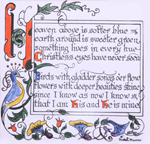 Heaven above is softer blue
earth around is sweeter green,
something lives in every hue
Christless eyes have never seen
Birds with gladder songs o'er flow
flowers with deeper beauties shine
since I know as now I know
that I am His and He is mine